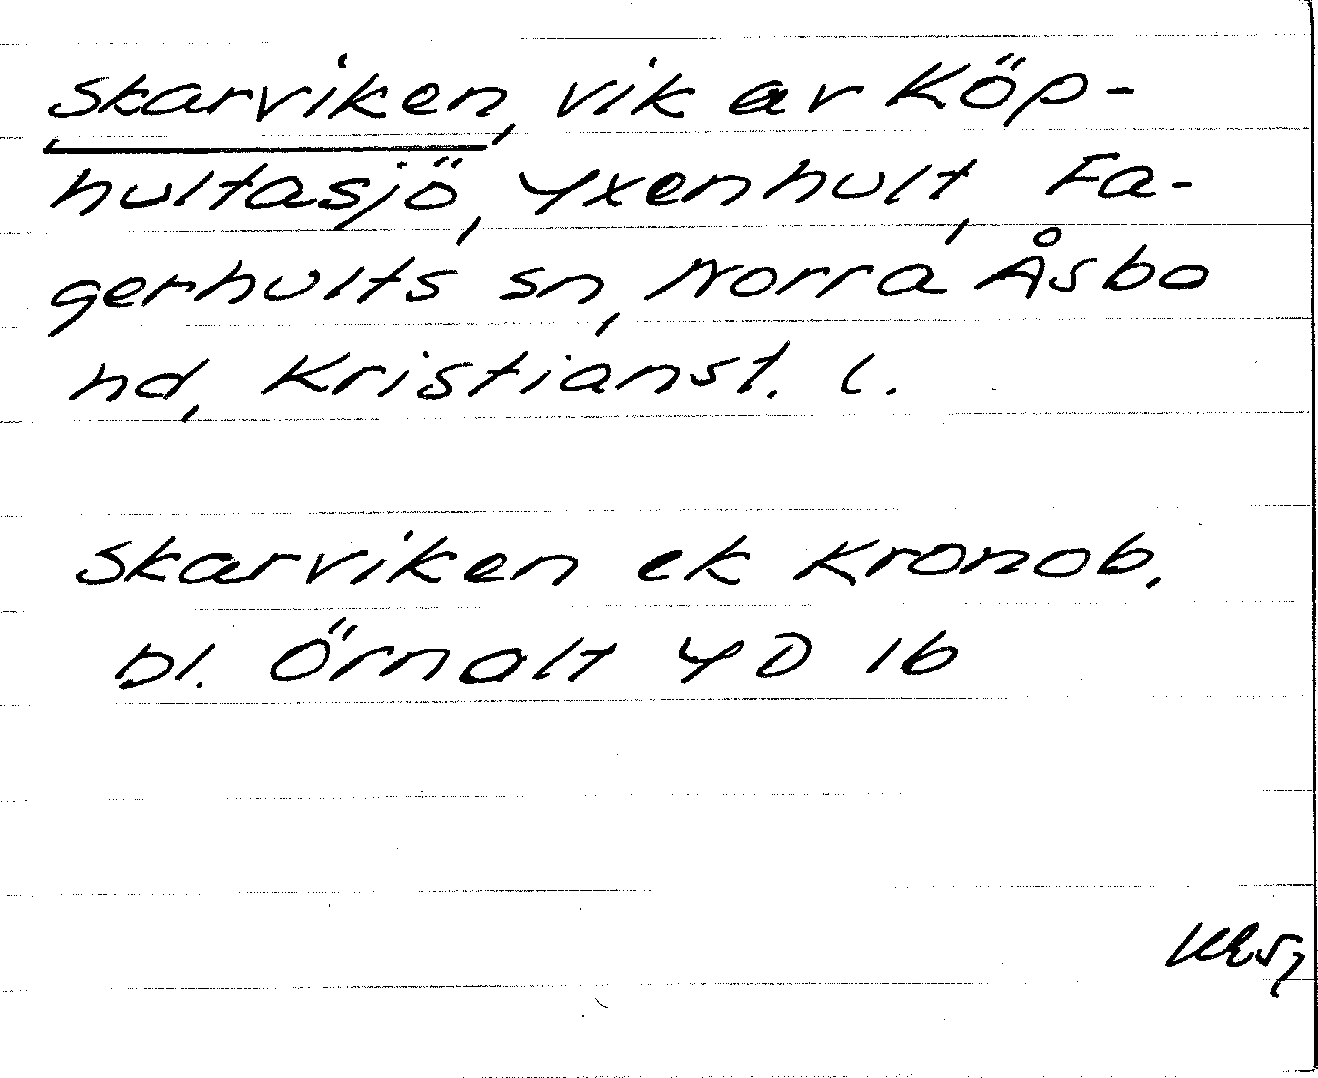 Skarviken, vik av Köp-
hultasjö, Yxenhult, Fa-
gerhults sn, Norra Åsbo
hd, Kristianst. l.
Skarviken ek Kronob.
bl. Örnalt 4D 16